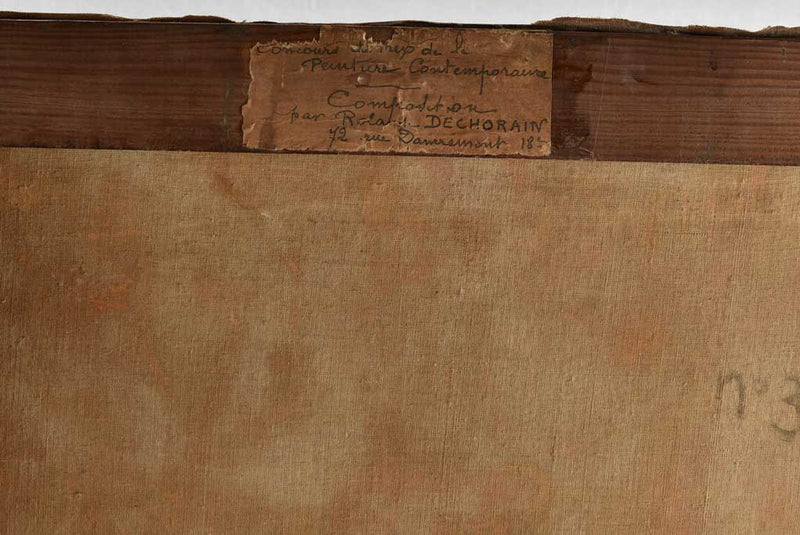 Concours de la
Peinture Contemporaine
Composition
par DECHORAIN
72 rue Damremont 18e
n°3